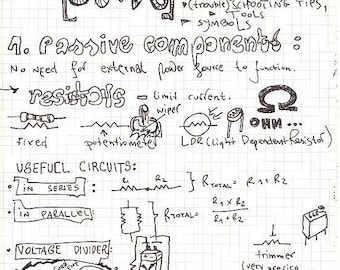 (trouble)SCHOOTING TIPS,
TOOLS
SYMBOLS
1. Passive components :
No need for external power source to function.
resistors – limit current.
wiper
fixed
potentiometer
LDR (Light Dependent Resistor)
Ω
OHM...
USEFUEL CIRCUITS:
• IN SERIES: R1 R2 } R TOTAL = R1 + R2
• IN PARALLEL: } R TOTAL = R1 x R2 / R1 + R2
• VOLTAGE DIVIDER:
trimmer
(very precise